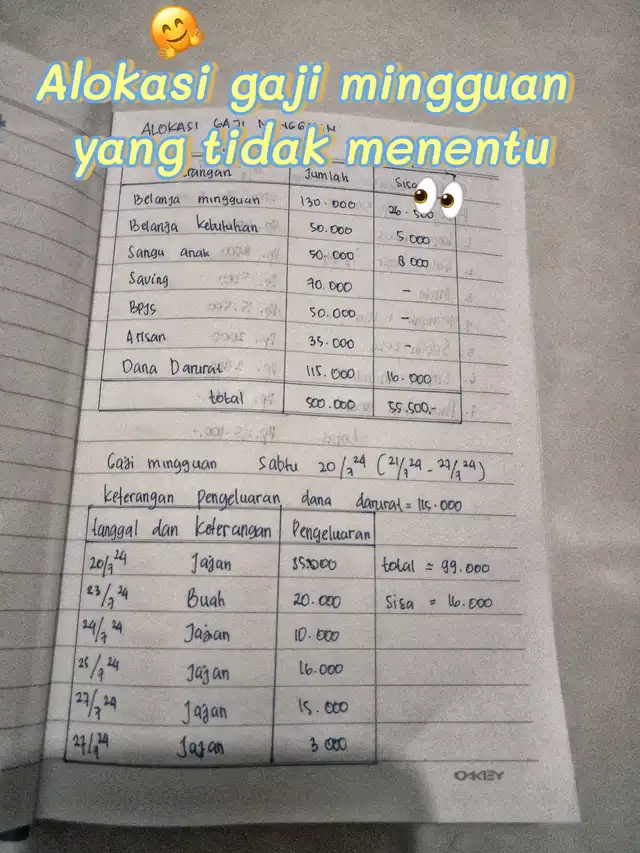 Alokasi gaji mingguan
yang tidak menentu
ALOKASI GAJI
Jumlah Sisa
Belanja mingguan 130.000 26.500
Belanja kebutuhan 50.000 5.000
Sangu anak 50.000 8 000
Saving 70.000 -
BPJS 50.000 -
Arisan 35.000 -
Dana Darurat 115.000 16.000
total 500.000 55.500,-
Gaji mingguan Sabtu 20/7 24 (21/7 24 - 27/7 24)
keterangan pengeluaran dana darurat = 115.000
tanggal dan keterangan Pengeluaran
20/7 24 Jajan 35.000 total = 99.000
23/7 24 Buah 20.000 Sisa = 16.000
24/7 24 Jajan 10.000
25/7 24 Jajan 16.000
27/7 24 Jajan 15.000
27/7 24 Jajan 3 000
OAKLEY